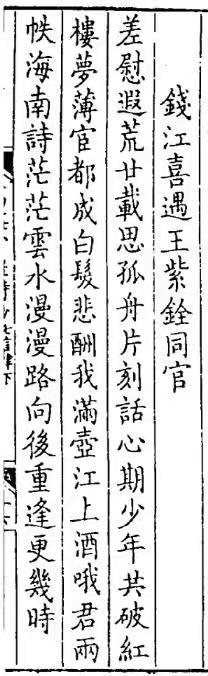 錢江喜遇王紫銓同官
差慰遐荒廿載思孤舟片刻話心期少年共破紅
樓夢薄宦都成白髮悲酬我滿壺江上酒哦君兩
帙海南詩茫茫雲水漫漫路向後重逢更幾時